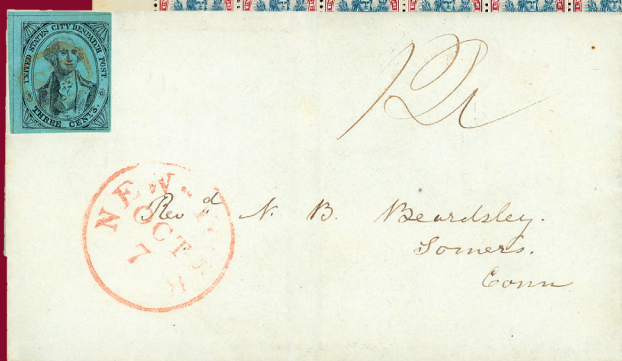 UNITED STATES CITY DESPATCH POST.
THREE CENTS.
NEW-Y
OCT
7
Revd N. B. Beardsley.
Somers.
Conn